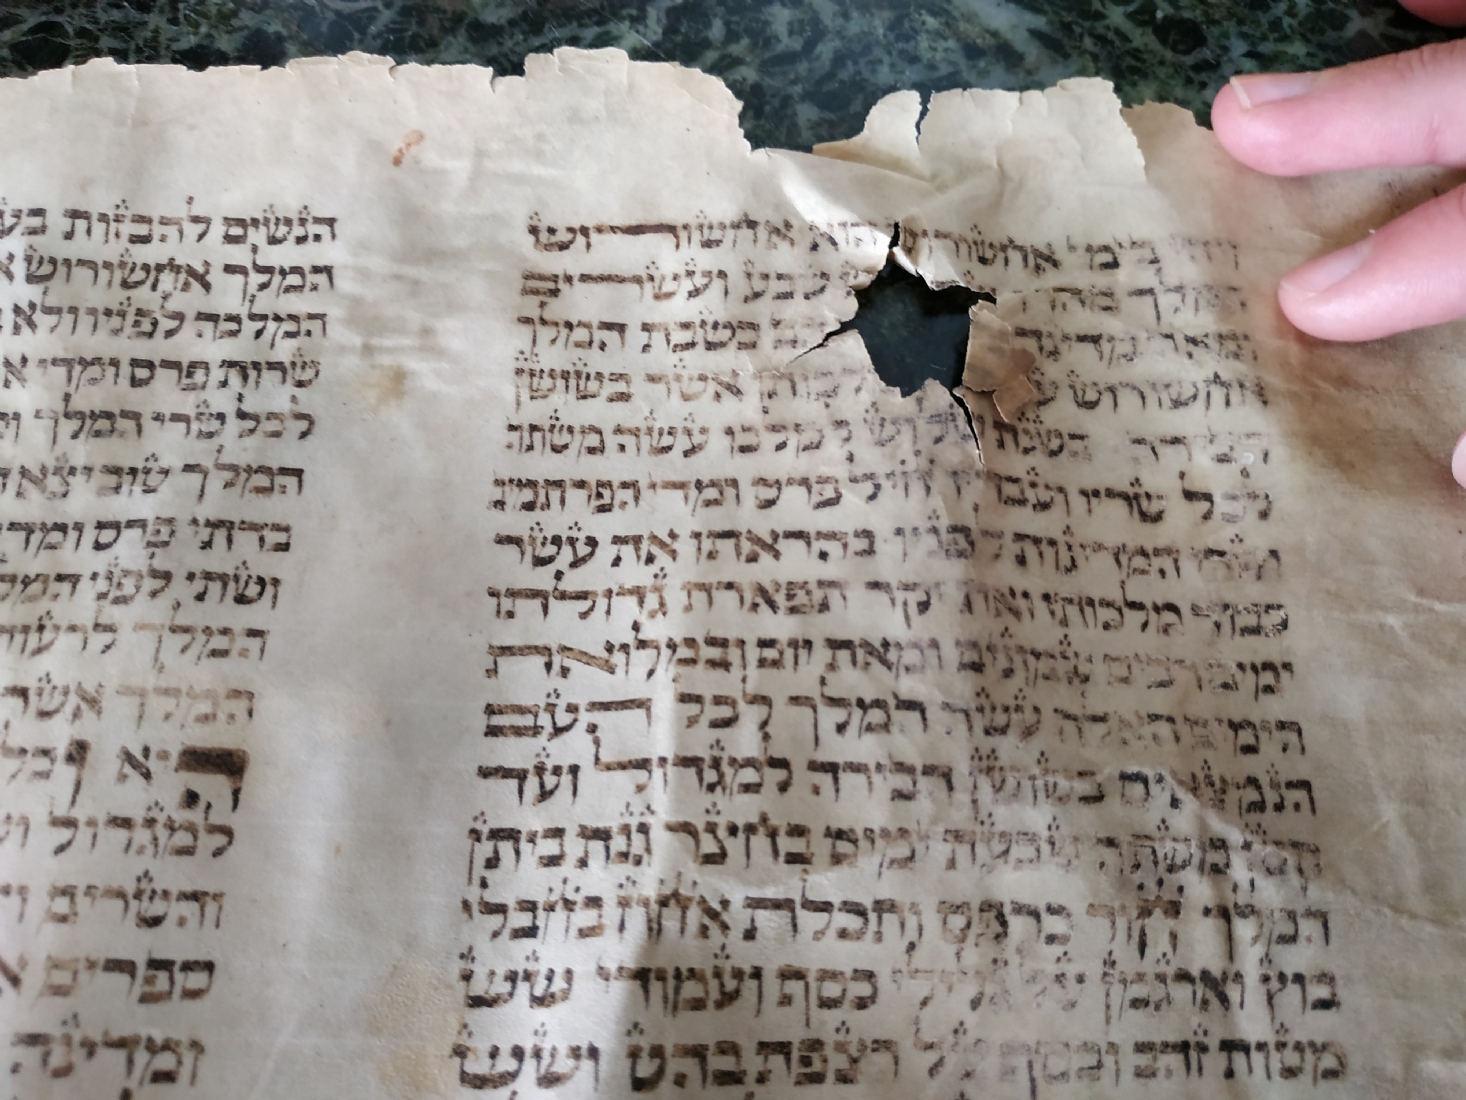 ויהי בימי אחשורוש הוא אחשורוש
המלך מהדו שבע ועשרים
ומאה מדינה בשבת המלך
אחשורוש מלכותו אשר בשושן
הבירה בשנת שלוש למלכו עשה משתה
לכל שריו ועבדיו חיל פרס ומדי הפרתמים
ושרי המדינות לפניו בהראתו את עשר
כבוד מלכותו ואת יקר תפארת גדולתו
ימים רבים שמונים ומאת יום ובמלואת
הימים האלה עשה המלך לכל העם
הנמצאים בשושן הבירה למגדול ועד
קטן משתה שבעת ימים בחצר גנת ביתן
המלך חור כרפס ותכלת אחוז בחבלי
בוץ וארגמן על גלילי כסף ועמודי שש
מטות זהב וכסף על רצפת בהט ושש
הנשים להבזות
המלך אחשורוש
המלכה לפניו ולא
שרות פרס ומדי
לכל שרי המלך
המלך טוב יצא
בדתי פרס ומדי
ושתי לפני
המלך לרעותה
המלך אשר
היא וכל
למגדול
והשרים
ספרים
ומדינה